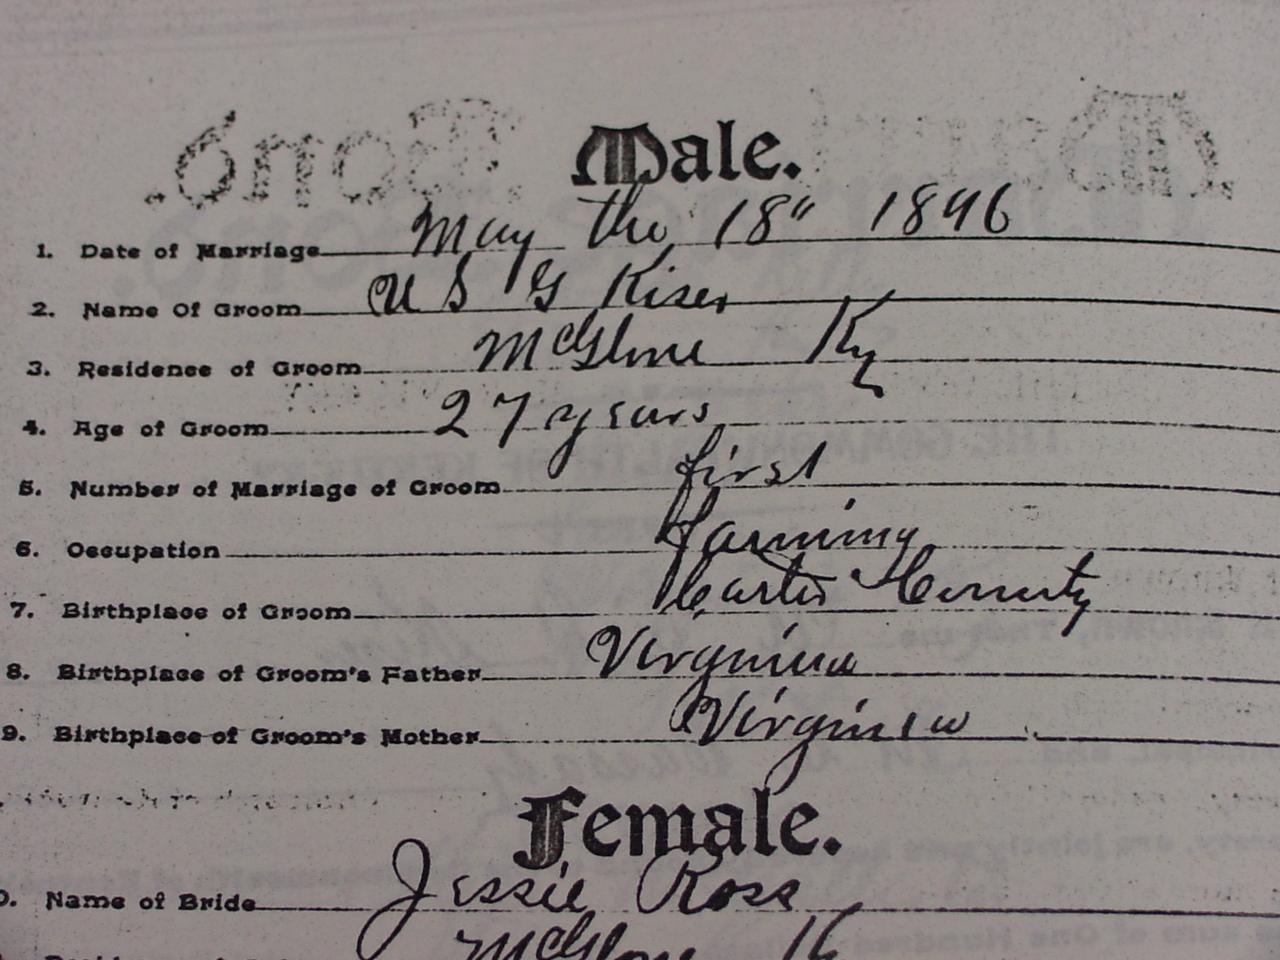 Male.
1. Date of Marriage May the 18" 1896
2. Name Of Groom U S G Kiser
3. Residence of Groom McGlone Ky
4. Age of Groom 27 years
5. Number of Marriage of Groom first
6. Occupation farming
7. Birthplace of Groom Carter County
8. Birthplace of Groom's Father Virginia
9. Birthplace of Groom's Mother Virginia
Female.
Name of Bride Jessie Ross
McGlone K